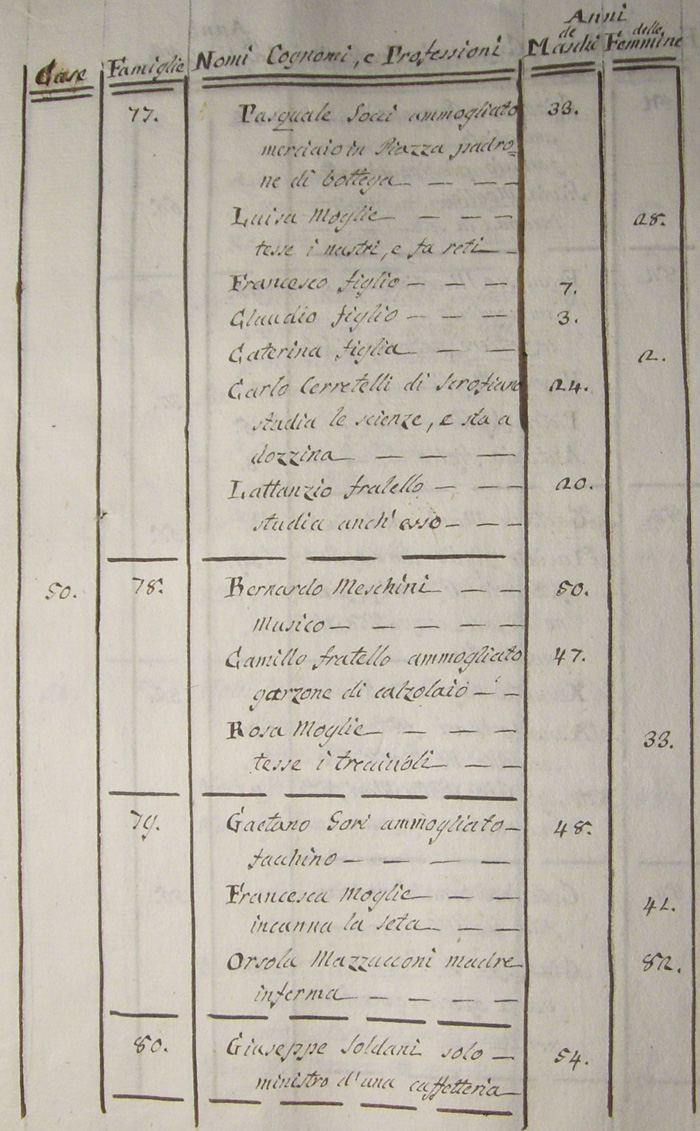 Anni
Case Famiglie Nomi Cognomi, e Professioni de Maschi delle Femmine
77. Pasquale Socci ammogliato 33.
merciaio in Piazza padro=
ne di bottega
Luisa Moglie 28.
tesse i nastri, e fa reti
Francesco figlio 7.
Claudio figlio 3.
Caterina figlia 2.
Carlo Cerretelli di Scrofiano 24.
studia le scienze, e sta a
dozzina
Lattanzio fratello 20.
studia anch'esso
50. 78. Bernardo Meschini 50.
musico
Camillo fratello ammogliato 47.
garzone di calzolaio
Rosa Moglie 33.
tesse i treciuoli
79. Gaetano Gori ammogliato 48.
facchino
Francesca moglie 42.
incanna la seta
Orsola Mazzacconi madre 82.
inferma
80. Giuseppe Soldani solo 54.
ministro d'una caffetteria